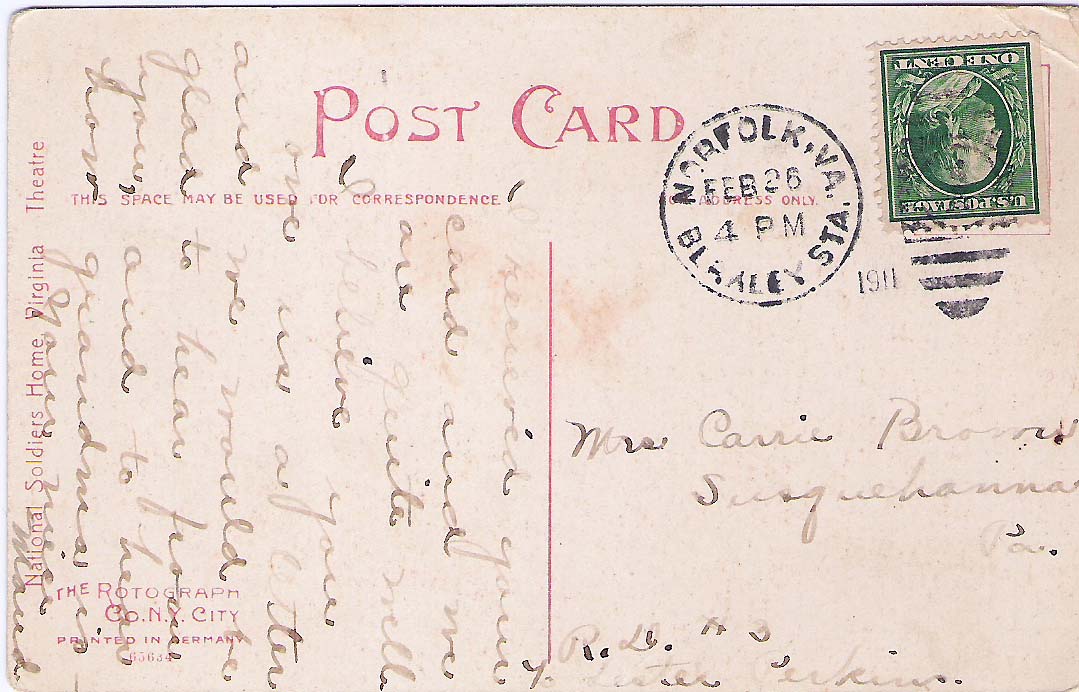 POST CARD
THIS SPACE MAY BE USED FOR CORRESPONDENCE
ADDRESS ONLY.
ONE CENT
U.S. POSTAGE
NORFOLK, VA.
FEB 26
4 PM
BERKLEY STA.
1911
I received your
card and we
are quite well
I believe you
owe us a letter
and we would be
glad to hear from
you, and to hear
how grandma is
Your niece
Maud
Mrs Carrie Brown
Susquehanna
Pa.
R.D. # 3
% Lester Perkins.
National Soldiers Home, Virginia Theatre
THE ROTOGRAPH
CO. N.Y. CITY
PRINTED IN GERMANY
65634